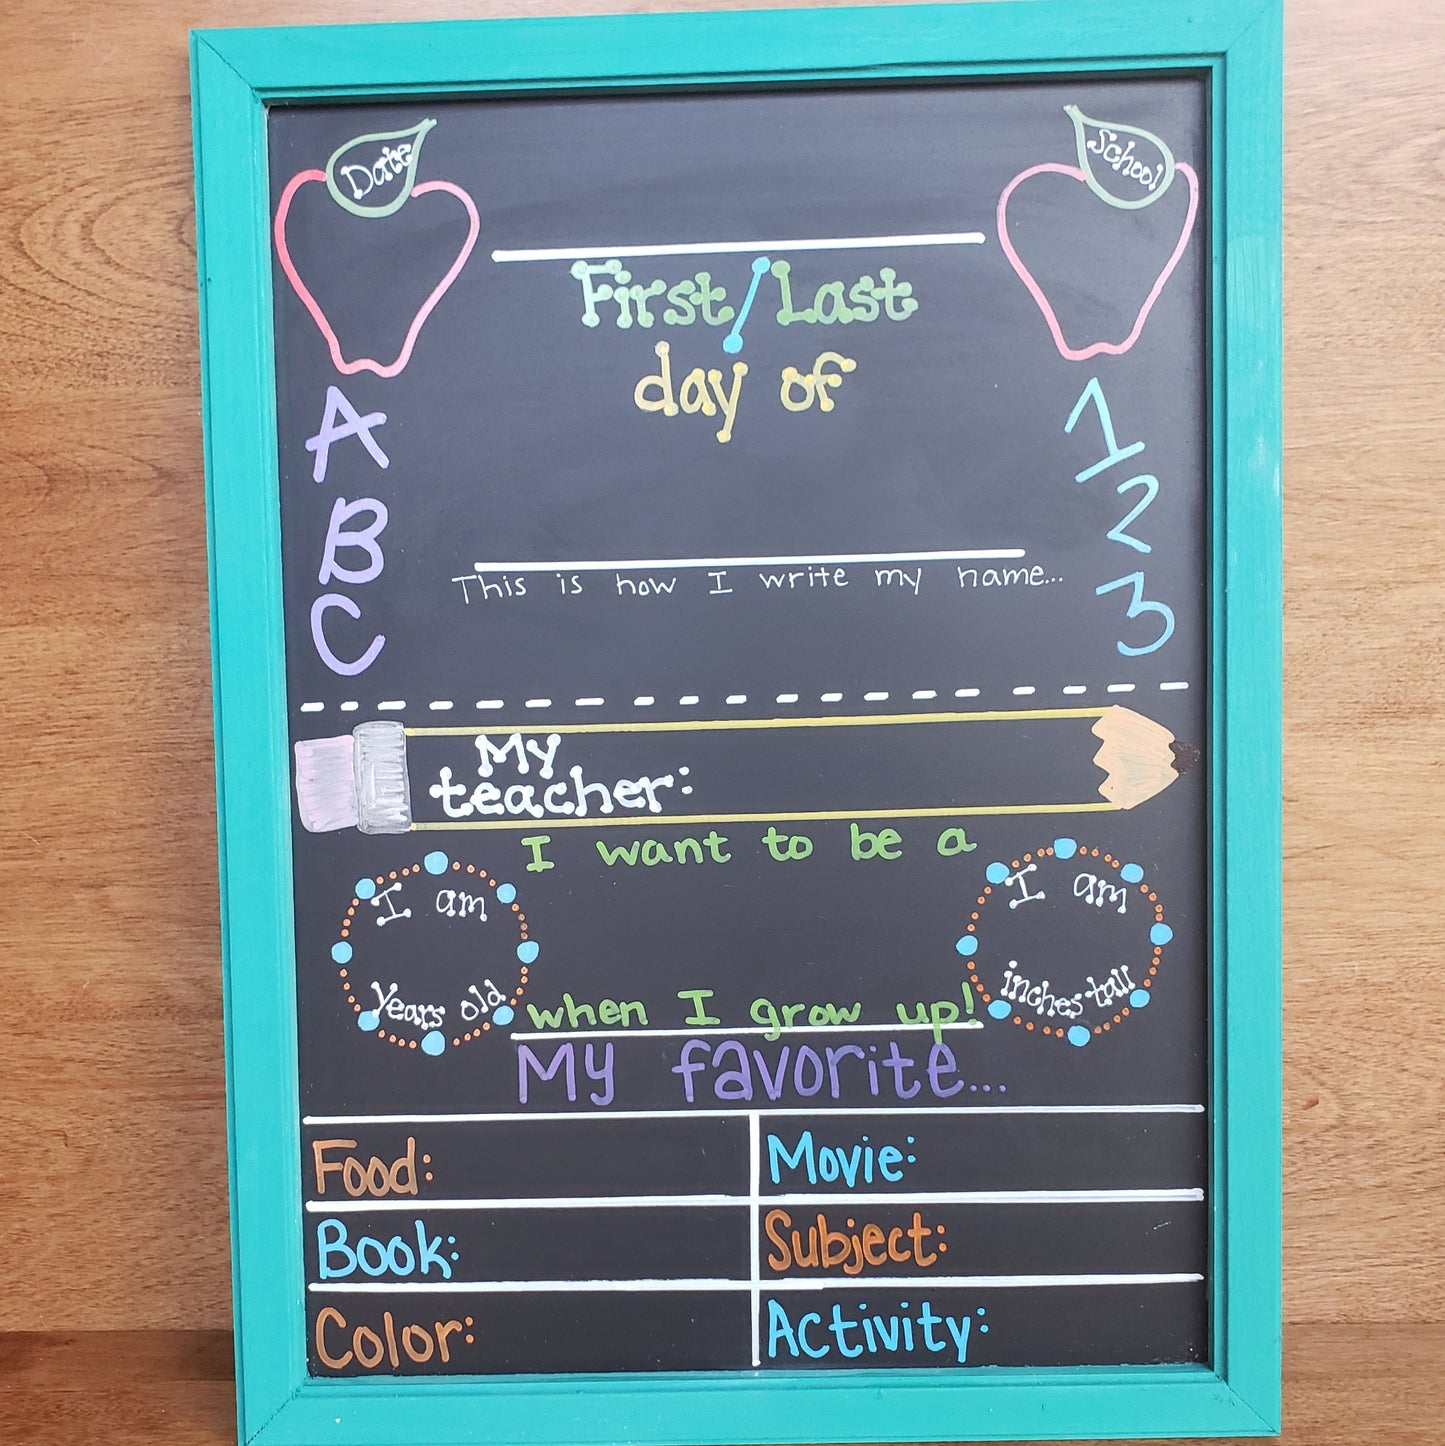 Date
School
First/Last
day of
A
B
C
1
2
3
This is how I write my name...
My
teacher:
I want to be a
I am
years old
I am
inches tall
when I grow up!
My favorite...
Food:
Movie:
Book:
Subject:
Color:
Activity: